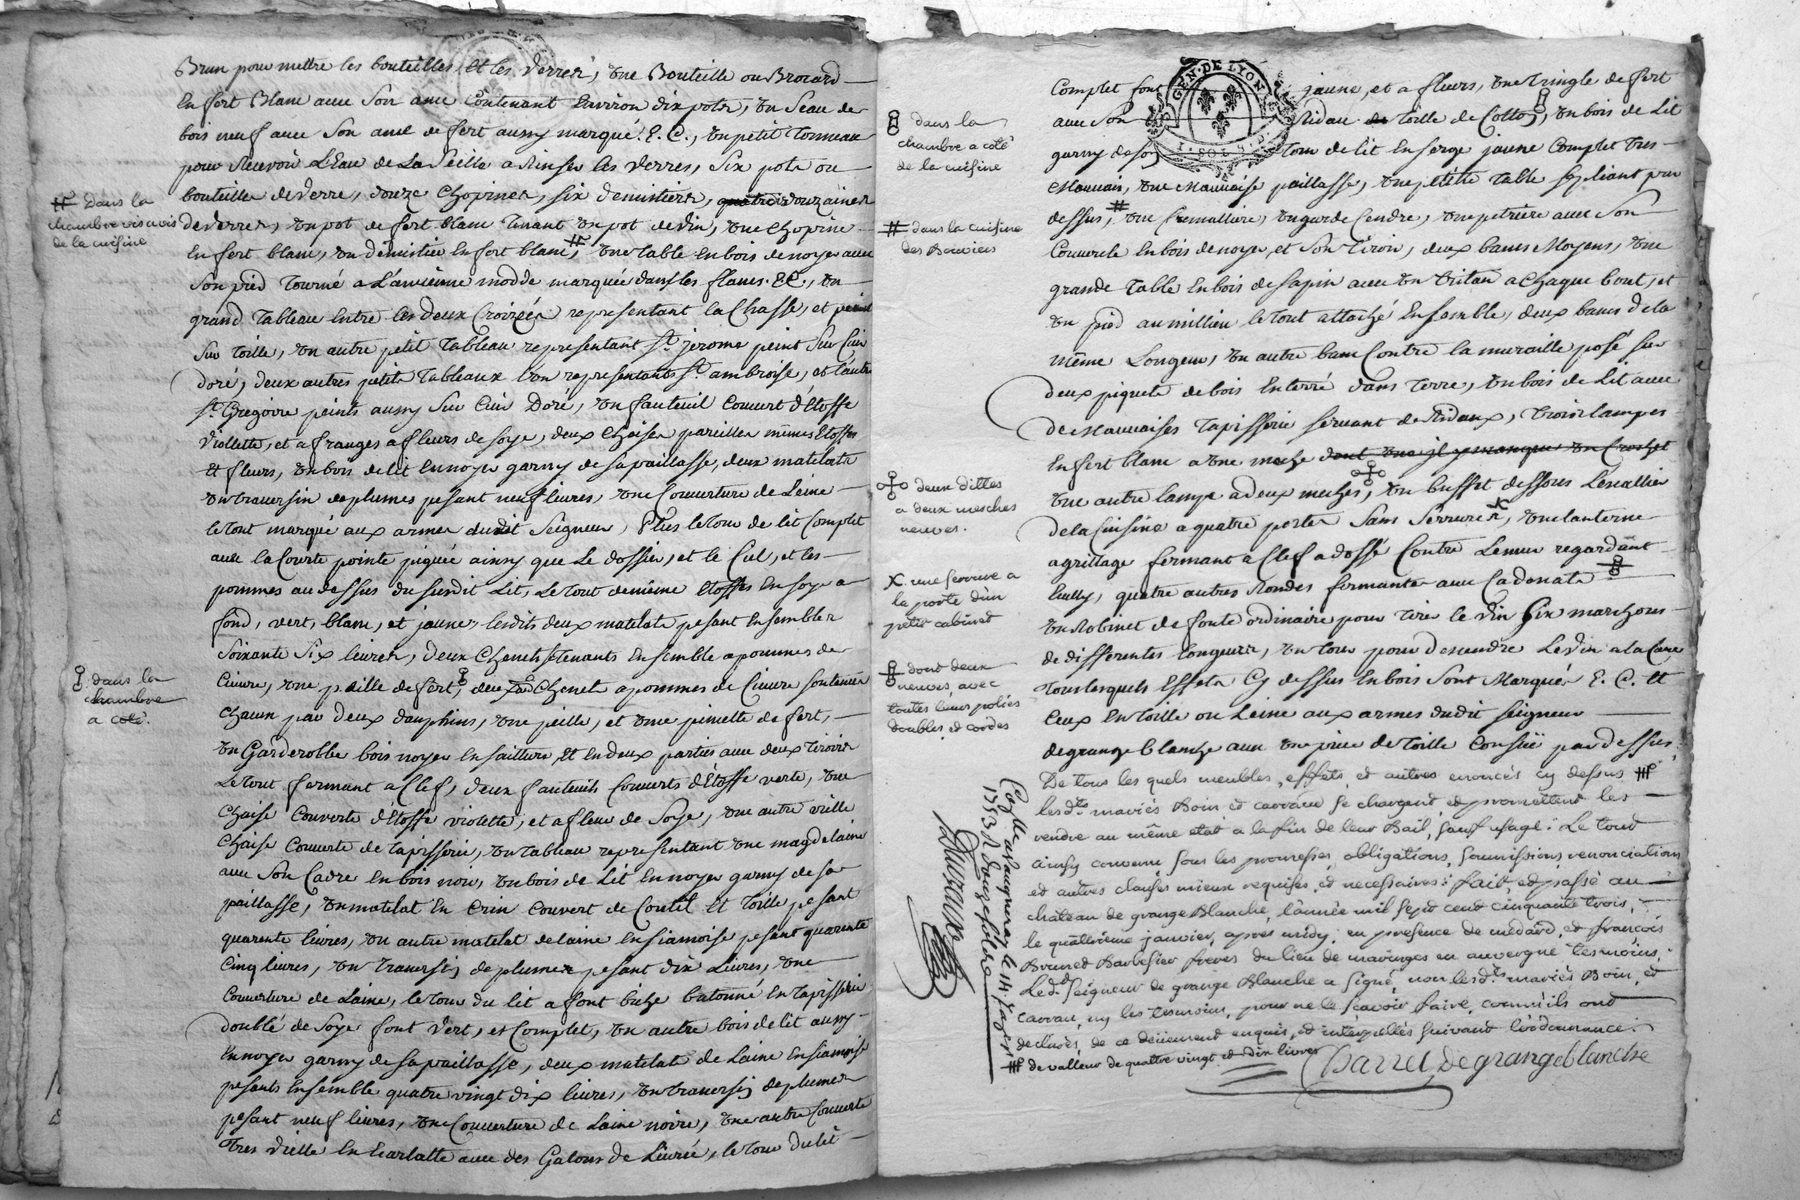 Brun pour mettre les bouteilles, et les verres, une Bouteille ou Brocard
en fert Blanc avec son anse contenant environ dix pots, un seau de
bois neuf avec son anse de fert aussy marqué E. C., un petit tonneau
pour recevoir l'eau de la seille a rinser les verres, six pots ou
bouteille de verre, douze chopines, six demistiers, quatre douzaines
de verres, un pot de fert blanc tenant un pot de vin, une chopine
en fert blanc, un demistier en fert blanc, # une table en bois de noyer avec
son pied tourné a l'ancienne modde marquée dans les flancs EC, un
grand tableau entre les deux croizées representant la chasse, et peint
sur toille, un autre petit tableau representant St. jerome peint sur cuir
doré, deux autres petits tableaux l'un representants St. ambroise, et l'autre
St. Gregoire peints aussy sur cuir doré, un fauteuil couvert d'étoffe
viollette, et a franges a fleurs de soye, deux chaises pareilles mêmes étoffes
et fleurs, un bois de lit en noyer garny de sa paillasse, deux matelats
un traversin de plumes pesant neuf livres, une couverture de leine
le tout marqué aux armes dudit seigneur, plus le tour de lit complet
avec la courte pointe piquée ainsy que le dossier, et le ciel, et les
pommes au dessus du susdit lit, le tout de même étoffes en soye a
fond, vert, blanc, et jaune, lesdits deux matelats pesant ensembles
soixante six livres, deux chenets se tenants ensemble a pommes de
cuivre, une paille de fert, deux chenets a pommes de cuivre soutenus
chacun par deux dauphins, une pelle, et une pincette de fert,
un garderobbe bois noyer en saillure, et en deux parties avec deux tiroirs
le tout fermant a clef, deux fauteuils couverts d'étoffe verte, une
chaise couverte d'étoffe violette, et a fleur de soye, une autre vielle
chaise couverte de tapisserie, un tableau representant une magdelaine
avec son cadre en bois noir, un bois de lit en noyer garny de sa
paillasse, un matelat en crin couvert de coutil et toille pesant
quarente livres, un autre matelat de laine en siamoise pesant quarente
cinq livres, un traversin de plumes pesant dix livres, une
couverture de laine, le tour du lit a font biche batonné en tapisserie
doublé de soye font vert, et complet, un autre bois de lit aussy
en noyer garny de sa paillasse, deux matelats de laine en siamoise
pesants ensemble quatre vingt dix livres, un traversin de plumes
pesant neuf livres, une couverture de laine noire, une autre couverte
tres vielle en ecarlatte avec des galons de livrée, le tour du lit
# dans la
chambre vis a vis
de la cuisine
dans la
chambre
a coté.
complet font jaune, et a fleurs, une tringle de fert
avec son ridau de toille de cotton, un bois de lit
garny de son tour de lit en serge jaune complet tres
mauvais, une mauvaise paillasse, une petite table se pliant par
dessus, # une cremallaire, un garde cendre, une petrière avec son
couvercle en bois de noyer, et son tiroir, deux bancs moyens, une
grande table en bois de sapin avec un tritau a chaque bout, et
un pied au millieu le tout attaché ensemble, deux bancs de la
même longeur, un autre banc contre la muraille posé sur
deux piquets de bois enterré dans terre, un bois de lit avec
de mauvaises tapisserie servant de ridaux, trois lampes
en fert blanc a une meche dont une il y manque un crochet
une autre lampe a deux meches, un buffet dessous lescallier
de la cuisine a quatre portes sans serrures, une lanterne
a grillage fermant a clef adossé contre le mur regardant
quatre autres rondes fermantes avec cadenats
un robinet de fonte ordinaire pour tirer le vin six marchons
de differentes longeurs, un tour pour descendre le vin a la cave
tous lesquels effets cy dessus en bois sont marqués E. C. et
ceux en toille ou leine aux armes dudit seigneur
de grange blanche avec une piece de toille cousüe par dessus.
De tous les quels meubles, effets et autres enoncés cy dessus #
lesdts. mariés Boin et carran se chargent et promettent les
rendre au même etat a la fin de leur Bail, sauf usage. Le tout
ainsy convenu sous les promesses, obligations, soumissions renonciations
et autres clauses mieux requises, et necessaires: fait, et passé au
château de grange Blanche, l'année mil sept cent cinquante trois,
le quatrième janvier, apres midy, en presence de médard, et françois
Brunet Barbesier freres du lieu de maringes en auvergne tesmoins,
Ledt. seigneur de grange Blanche a signé, non lesdts. mariés Boin, et
carran, ny les tesmoins, pour ne le scavoir faire, comm'ils ont
declarés, de ce deüement enquis, et interpellés suivant l'ordonnance.
# de valleur de quattre vingt et dix livres
Barret, De grangeblanche
GEN. DE LYON
dans la
chambre a coté
de la cuisine
# dans la cuisine
des Bouviers
deux dittes
a deux mesches
neuves.
X. une serrure a
la porte d'un
petit cabinet
dont deux
neuves, avec
toutes leurs poliés
doubles et cordes
1753